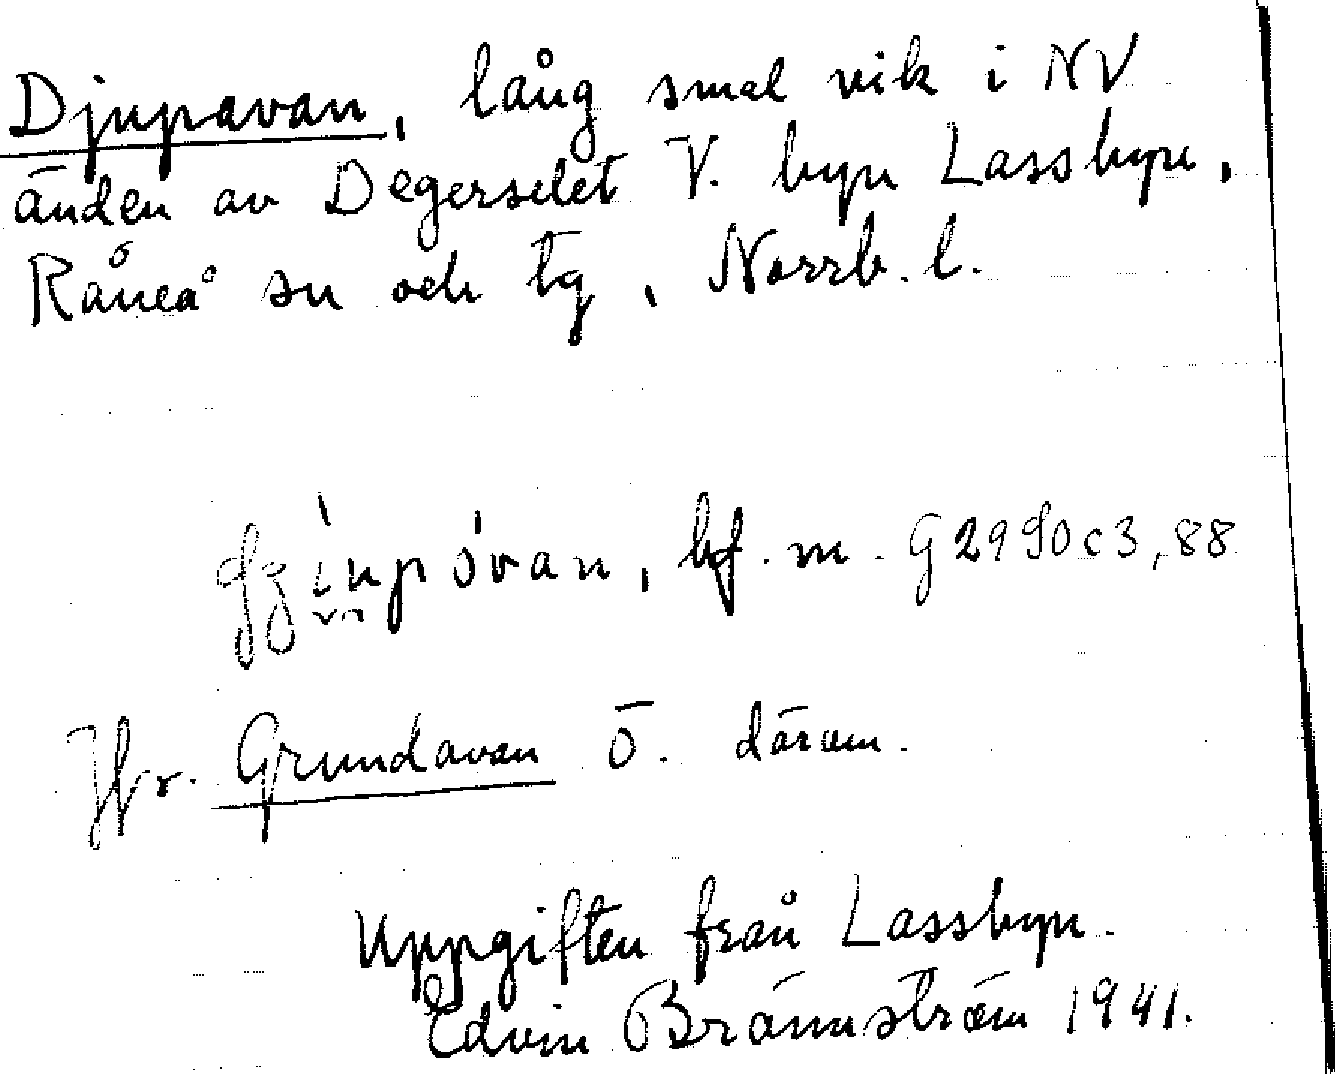 Djupavan, lång smal vik i NV
änden av Degerselet V. byn Lassbyn,
Råneå sn och tg, Norrb. l.
bf. m. G2990c3,88
Jfr. Grundavan Ö. därom.
Uppgiften från Lassbyn.
Edvin Brännström 1941.